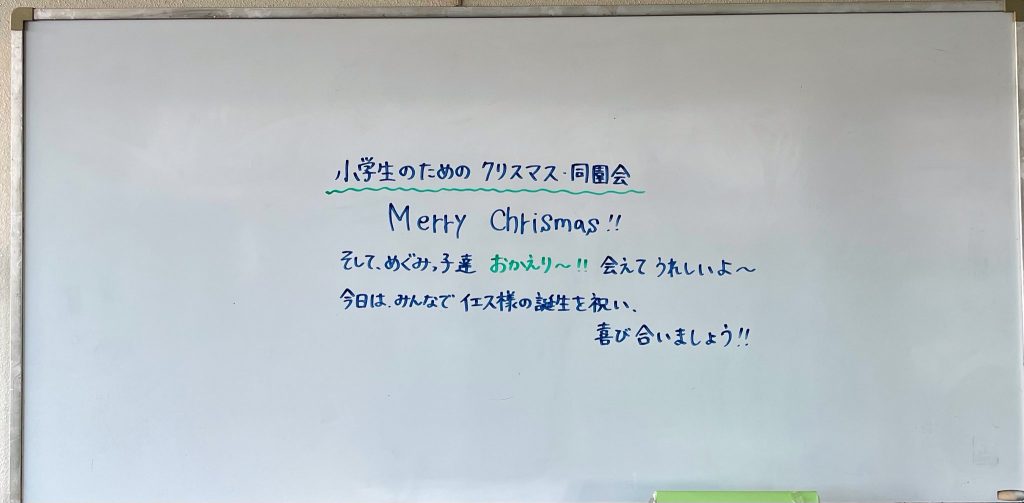 小学生のための クリスマス・同園会
Merry Chrismas!!
そして、めぐみっ子達 おかえり〜!! 会えて うれしいよ〜
今日は、みんなで イエス様の誕生を祝い、
喜び合いましょう!!